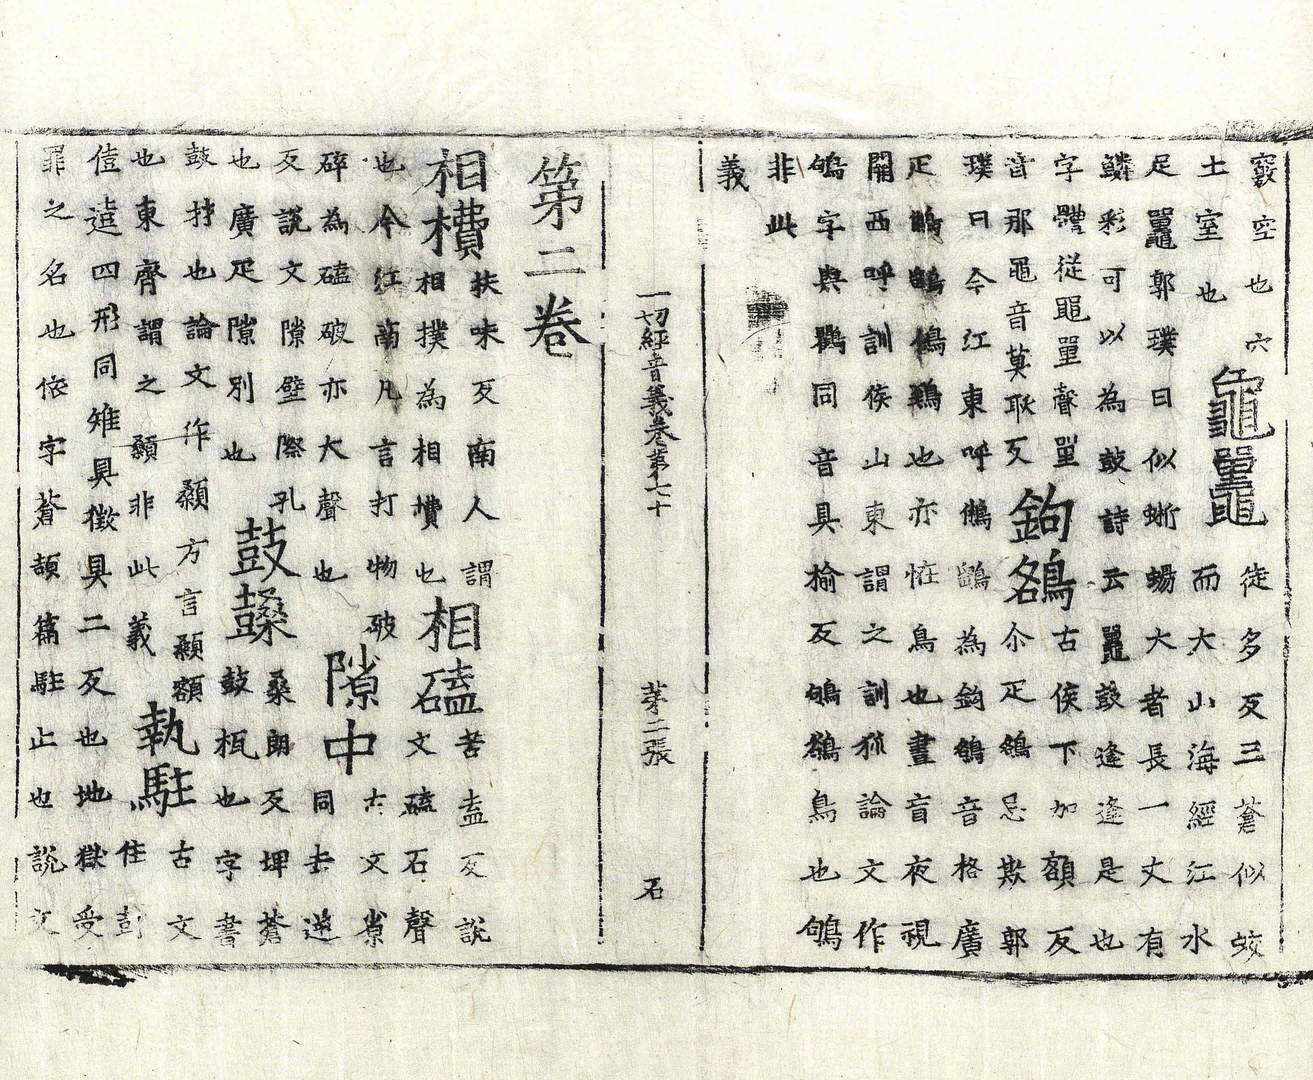 竅空也穴
土室也
龜鼉
徒多反三蒼似蛟
而大山海經江水
足鼉郭璞曰似蜥蜴大者長一丈有
鱗彩可以為鼓詩云鼉鼓逢逢是也
字體從黽單聲單
音那黽音莫耿反
鉤鵅
古侯下加額反
尒疋鵅忌欺郭
璞曰今江東呼鵂鶹為鉤鵅音格廣
疋鵂鶹鵂鶹也亦恠鳥也晝盲夜視
關西呼訓侯山東謂之訓狐論文作
鴝字與鸜同音具揄反鴝鵒鳥也鴝
非此
義
一切經音義卷第七十 第二張 石
第二卷
相
扶味反南人謂
相撲為相也
相磕
苦盍反說
文磕石聲
也今江南凡言打物破
碎為磕破亦大聲也
隙中
古文𡭴同去逆
反說文隙壁際孔
也廣疋隙別也
鼓顙
桑朗反埤蒼
鼓㼹也字書
鼓材也論文作顙方言顙額
也東齊謂之顙非此義
執駐
古文
住尌
侸逗四形同雉具徵具二反也地獄受
罪之名也依字蒼頡篇駐止也說文